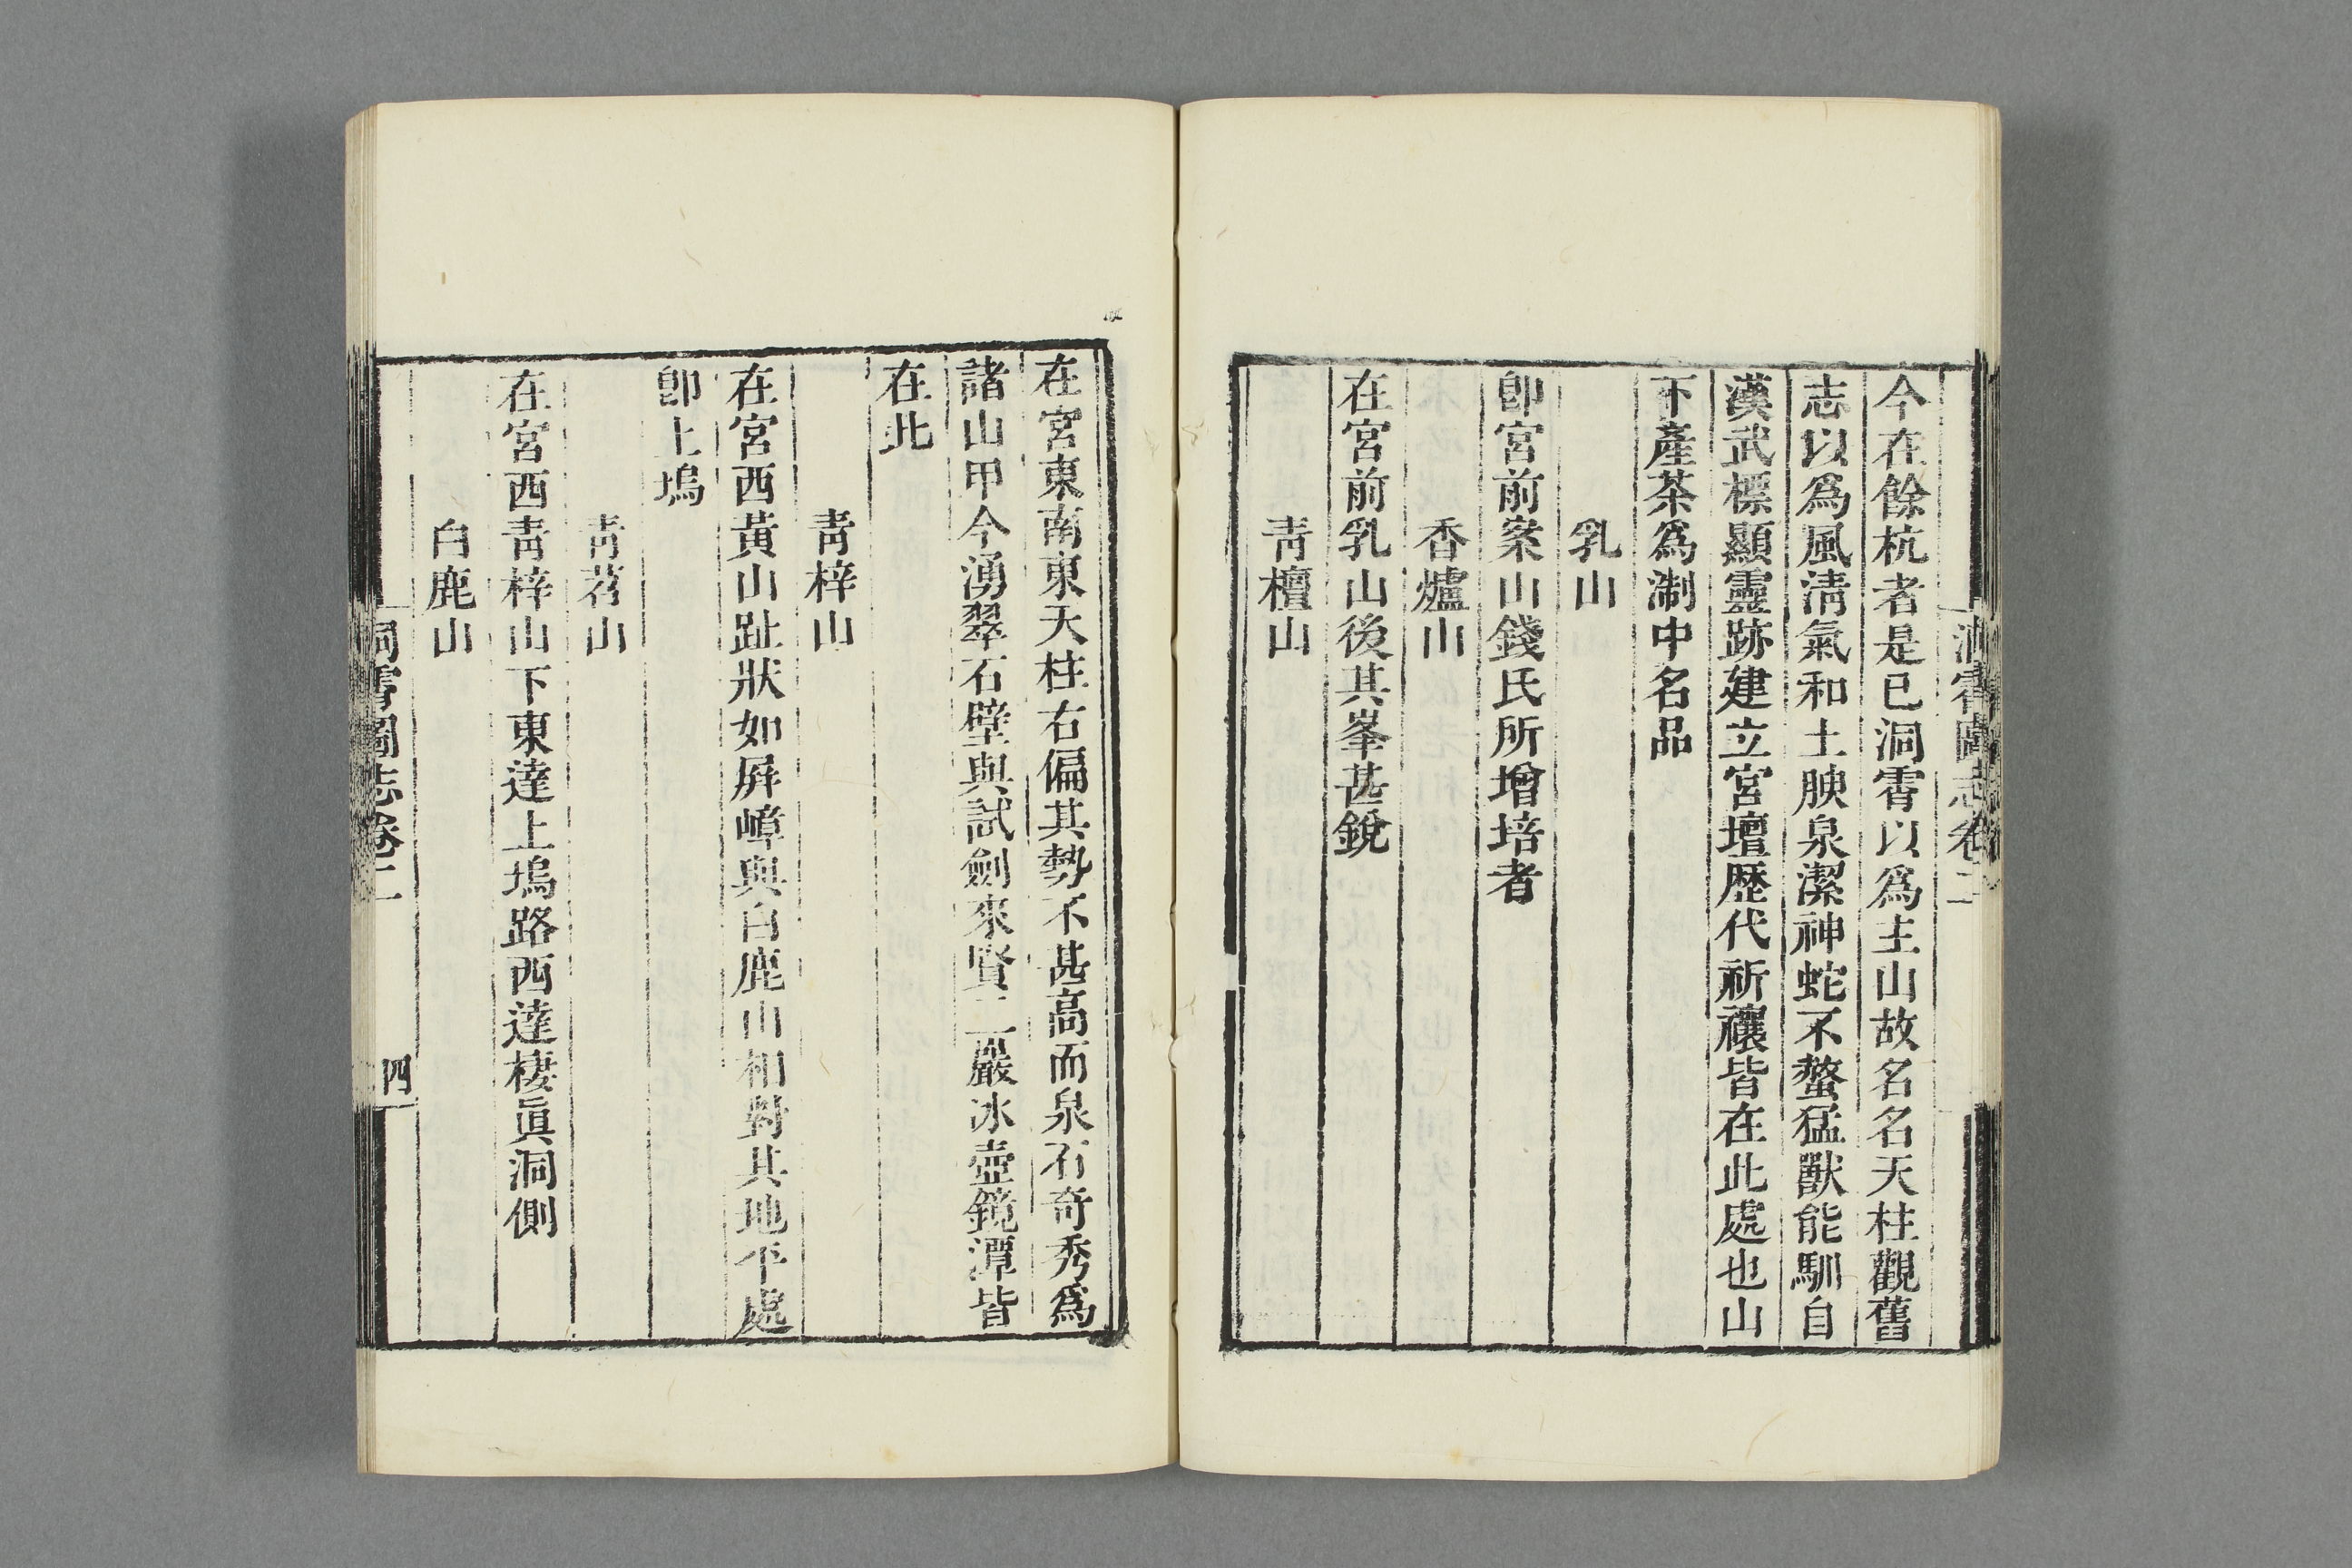 洞霄圖志卷二
今在餘杭者是已洞霄以爲主山故名名天柱觀舊
志以爲風淸氣和土腴泉潔神蛇不螫猛獸能馴自
漢武標顯靈跡建立宮壇歷代祈禳皆在此處也山
下產茶爲淛中名品
乳山
卽宮前案山錢氏所增培者
香爐山
在宮前乳山後其峯甚銳
靑檀山
在宮東南東天柱右偏其勢不甚高而泉石奇秀爲
諸山甲今湧翠石壁與試劍來賢二巖冰壺鏡潭皆
在此
靑梓山
在宮西黃山趾狀如屛嶂與白鹿山相對其地平處
卽上塢
靑苕山
在宮西靑梓山下東達上塢路西達棲眞洞側
白鹿山
洞霄圖志卷二
四